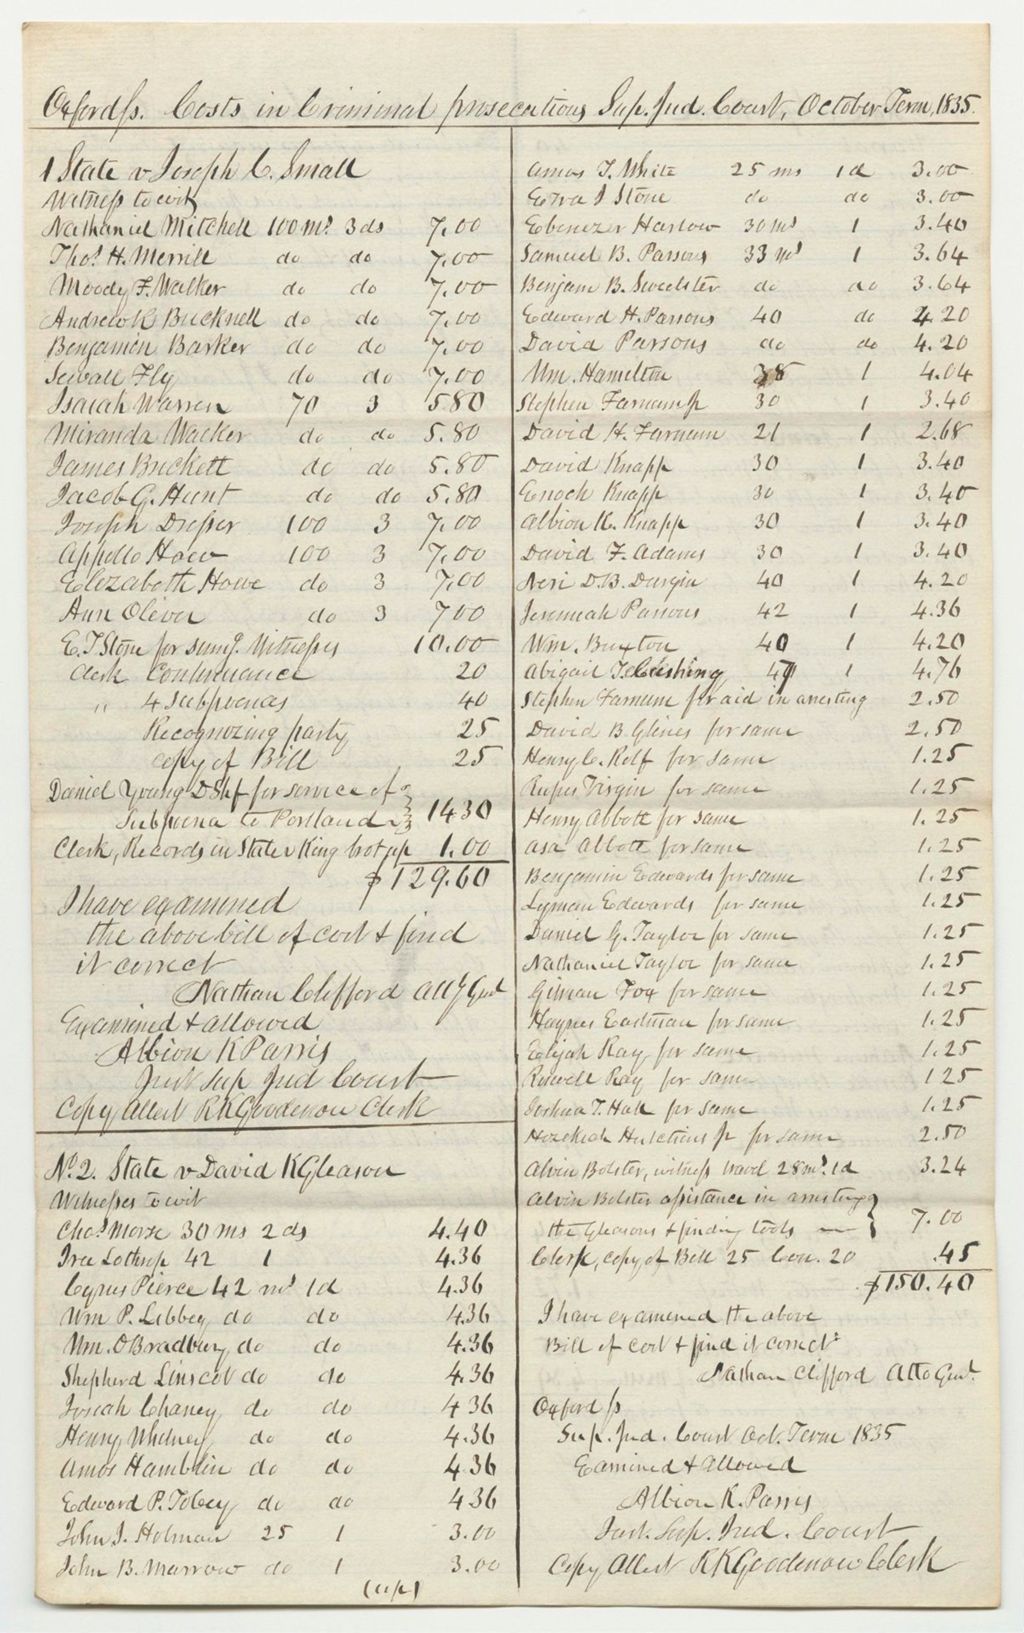 Oxford ss. Costs in Criminal prosecutions Sup. Jud. Court, October Term, 1835.
1 State v Joseph C. Small
Witness to wit
Nathaniel Mitchell 100 ms. 3 ds 7.00
Thos. H. Merrill do do 7.00
Moody F. Walker do do 7.00
Andrew R Bucknell do do 7.00
Benjamin Barker do do 7.00
Sewall Fly do do 7.00
Isaiah Warren 70 3 5.80
Miranda Walker do do 5.80
James Brickett do do 5.80
Jacob G. Hunt do do 5.80
Joseph Dresser 100 3 7.00
Appollo Howe 100 3 7.00
Elizabeth Howe do 3 7.00
Ann Oliver do 3 7 00
E. T. Stone for sumg. Witnesses 10.00
Clerk Continuance 20
" 4 Subpoenas 40
Recognizing party 25
copy of Bill 25
Daniel Young D Shf for service of
Subpoena to Portland 14 30
Clerk, Records in State v King brot up 1.00
$129.60
I have examined
the above bill of cost & find
it correct
Nathan Clifford Atty Genl
Examined & allowed
Albion K Parris
Just Sup Jud Court
Copy Attest R K Goodenow Clerk
No. 2. State v David K Gleason
Witnesses to wit
Chas. Morse 30 ms 2 ds 4.40
Ira Lothrop 42 1 4.36
Cyrus Pierce 42 ms 1d 4.36
Wm P. Libbey do do 4.36
Wm. O Bradbury do do 4.36
Shepherd Linscot do do 4.36
Josiah Chaney do do 4 36
Henry Whitney do do 4.36
Amos Hamblin do do 4.36
Edward P. Tobey do do 4 36
John J. Holman 25 1 3.00
John B. Marrow do 1 3.00
(up)
Amos T. White 25 ms 1d 3.00
Ezra T Stone do do 3.00
Ebenezer Harlow 30 ms 1 3.40
Samuel B. Parsons 33 ms 1 3.64
Benjam B. Sweetster do do 3.64
Edward H. Parsons 40 do 4.20
David Parsons do do 4.20
Wm. Hamilton 38 1 4.04
Stephen Farnum Jr 30 1 3.40
David H. Farnum 21 1 2.68
David Knapp 30 1 3.40
Enoch Knapp 30 1 3.40
Albion K. Knapp 30 1 3.40
David F. Adams 30 1 3.40
Neri D.B. Durgin 40 1 4.20
Jeremiah Parsons 42 1 4.36
Wm. Buxton 40 1 4.20
Abigail T. Cushing 47 1 4.76
Stephen Farnum for aid in arresting 2.50
David B. Glines for same 2.50
Henry C. Rolf for same 1.25
Rufus Virgin for same 1.25
Henry Abbott for same 1.25
Asa Abbott for same 1.25
Benjamin Edwards for same 1.25
Lyman Edwards for same 1.25
Daniel G. Taylor for same 1.25
Nathaniel Taylor for same 1.25
Gilman Fox for same 1.25
Haynes Eastman for same 1.25
Elijah Ray for same 1.25
Roswell Ray for same 1 25
Joshua T. Hall for same 1.25
Hezekiah Hutchins Jr for same 2.50
Alvin Bolster, witness travel 28 ms. 1d 3.24
Alvin Bolster assistance in arresting
the Gleasons & finding tools 7.00
Clerk, copy of Bill 25 Con. 20 .45
$150.40
I have examined the above
Bill of cost & find it correct
Nathan Clifford Atto Genl.
Oxford ss
Sup. Jud. Court Oct. Term 1835
Examined & allowed
Albion K. Parris
Just. Sup. Jud. Court
Copy Attest R K Goodenow Clerk